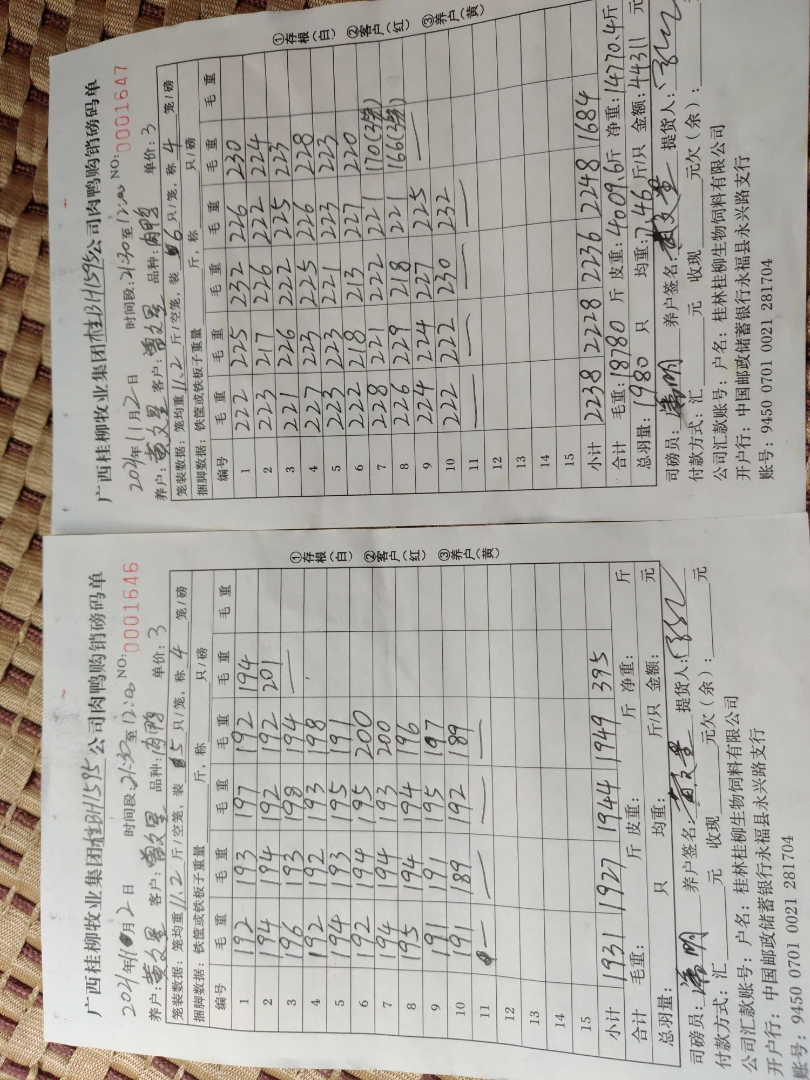 广西桂柳牧业集团桂BH1595公司肉鸭购销磅码单
2021年11月2日 时间段:21:30至12:00 NO:0001646
养户: 客户: 品种:肉鸭 单价:3
笼装数据:笼均重11.2斤/空笼,装5只/笼,称4笼/磅
捆脚数据:铁筐或铁板子重量 斤,称 只/磅
编号 毛重 毛重 毛重 毛重 毛重 毛重
1 192 193 197 192 194
2 194 194 192 192 201
3 196 193 198 194 —
4 192 192 193 198
5 194 193 195 191
6 192 194 195 200
7 194 194 193 200
8 195 194 194 196
9 191 191 195 197
10 191 189 192 189
11 — — — —
12
13
14
15
小计 1931 1927 1944 1949 395
合计 毛重: 斤 皮重: 斤 净重: 斤
总羽量: 只 均重: 斤/只 金额: 元
司磅员: 养户签名: 提货人:
付款方式:汇 元 收现 元欠(余): 元
公司汇款账号:户名:桂林桂柳生物饲料有限公司
开户行:中国邮政储蓄银行永福县永兴路支行
账号:9450 0701 0021 281704
①存根(白) ②客户(红) ③养户(黄)
广西桂柳牧业集团桂BH1595公司肉鸭购销磅码单
2021年11月2日 时间段:21:30至12:00 NO:0001647
养户: 客户: 品种:肉鸭 单价:3
笼装数据:笼均重11.2斤/空笼,装6只/笼,称4笼/磅
捆脚数据:铁筐或铁板子重量 斤,称 只/磅
编号 毛重 毛重 毛重 毛重 毛重 毛重
1 222 225 232 226 230
2 223 217 226 222 224
3 221 226 222 225 223
4 227 223 225 226 228
5 223 223 221 223 223
6 222 218 213 227 220
7 228 221 222 221 170(3笼)
8 226 229 218 221 166(3笼)
9 224 224 227 225 —
10 222 222 230 232
11 — — — —
12
13
14
15
小计 2238 2228 2236 2248 1684
合计 毛重:18780斤 皮重:4009.6斤 净重:14770.4斤
总羽量:1980只 均重:7.46斤/只 金额:44311元
司磅员: 养户签名: 提货人:
付款方式:汇 元 收现 元欠(余): 元
公司汇款账号:户名:桂林桂柳生物饲料有限公司
开户行:中国邮政储蓄银行永福县永兴路支行
账号:9450 0701 0021 281704
①存根(白) ②客户(红) ③养户(黄)